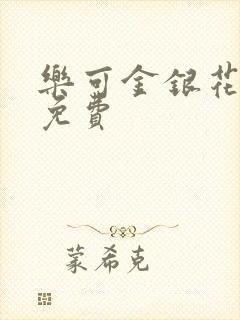 樂可金銀花
免費
蒙希克